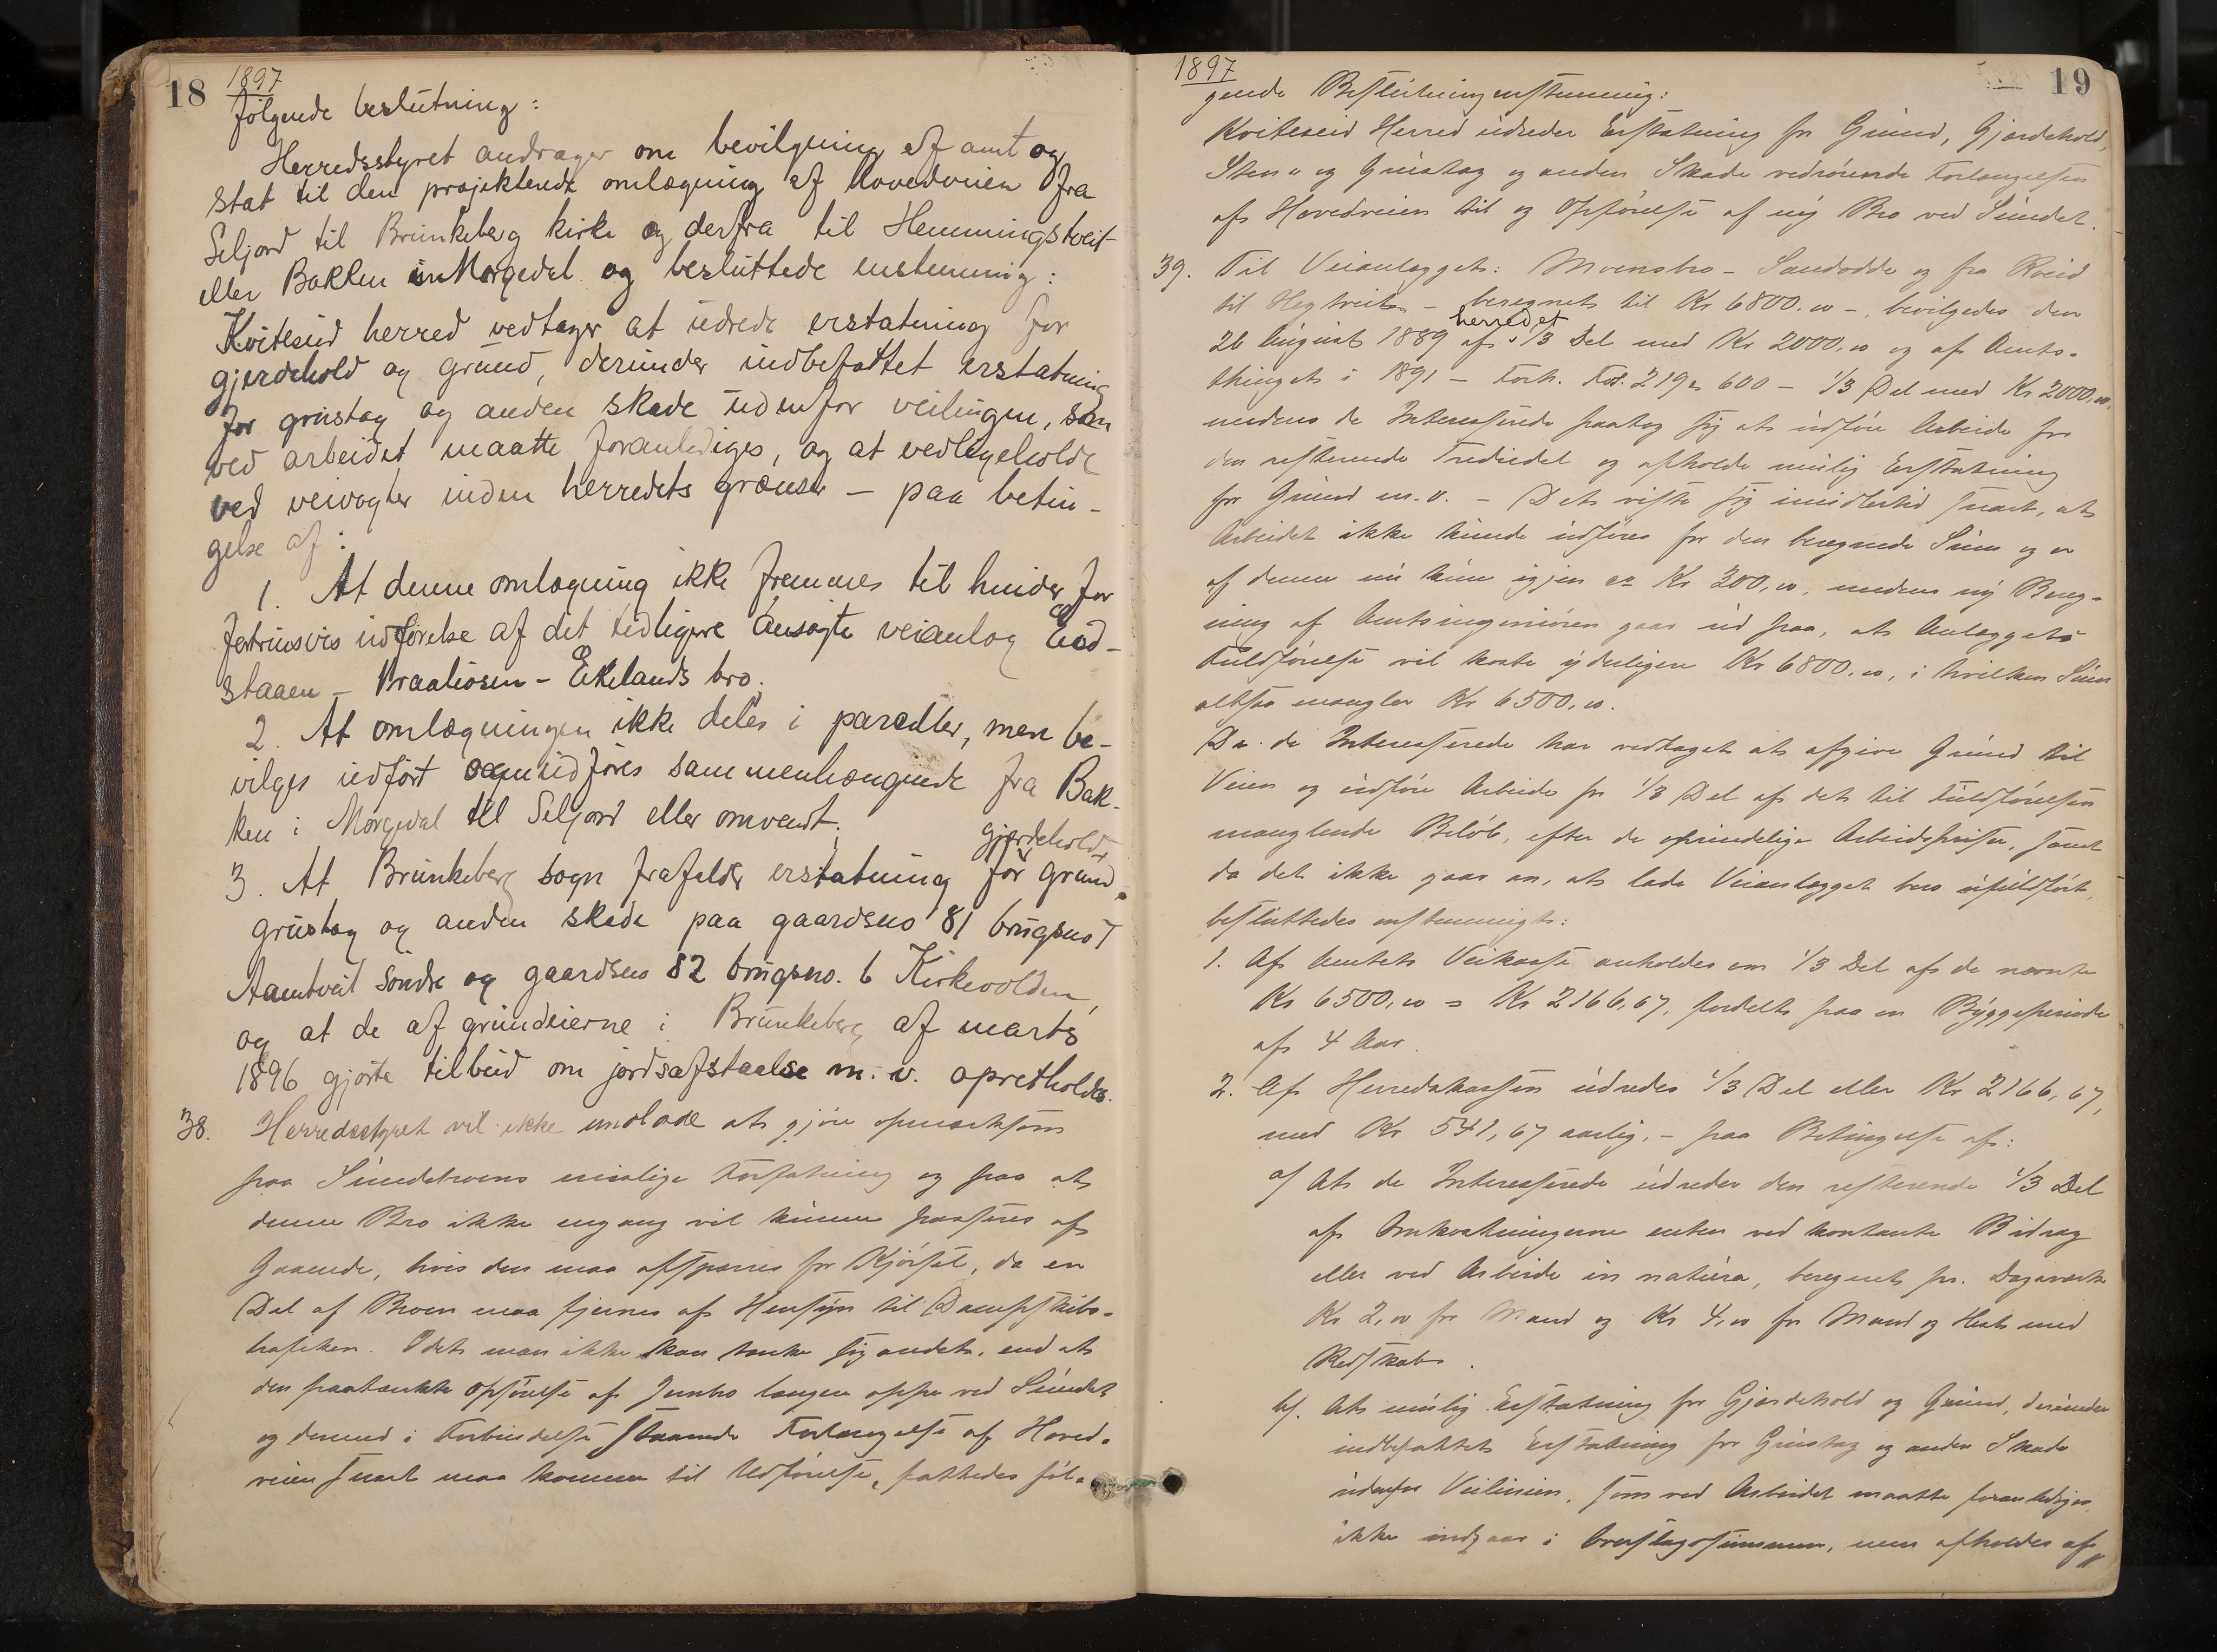 18 1897
følgende beslutning:
Herredsstyret andrager om bevilgning af amt og
stat til den projekterede omlægning af hovedveien fra
Seljord til Brunkeberg kirke og derfra til Hemmingstveit-
eller Bakken i Morgedal og besluttede enstemmig:
Kviteseid herred vedtager at udrede erstatning for
gjerdehold og grund, derunder indbefattet erstatning
for grustag og anden skade udenfor veilinjen, som
ved arbeidet maatte foranlediges, og at vedligeholde
ved veivogter inden herredets grænser – paa betin-
gelse af:
1. At denne omlægning ikke fremmes til hinder for
fortrinsvis udførelse af det tidligere ansøgte veianlæg
staaen – Braaliosen – Eikelands bro.
2. At omlægningen ikke deles i parceller, men be-
vilges udført og udføres sammenhængende fra Bak-
ken i Morgedal til Seljord eller omvendt.
gjærdehold,
3. At Brunkeberg sogn frafalder erstatning for grund,
grustag og anden skade paa gaardsno 81 brugsno 1
Aamtveit søndre og gaardsno 82 brugsno. 6 Kirkevolden,
og at de af grundeierne i Brunkeberg af marts
1896 gjorte tilbud om jordsafstaaelse m. v. opretholdes.
38. Herredsstyret vil ikke undlade at gjøre opmærksom
paa Sundetbroens uisolige Forfatning og paa at
denne Bro ikke engang vil kunne passeres af
Gaaende, hvis den maa afsperres for Kjørsel, da en
Del af Broen maa fjernes af Hensyn til Dampskibs-
trafiken. Idet man ikke kan tænke sig andet, end at
den paatænkte Opførelse af Jernbro længere oppe ved Sundet
og dermed i Forbindelse staaende Forlængelse af Hoved-
veien snart maa komme til Udførelse, fattedes føl-
1897 19
gende Beslutning enstemmig:
Kviteseid Herred udreder Erstatning for Grund, Gjærdehold,
Sten- og Grustag og anden Skade vedrørende Forlængelsen
af Hovedveien til og Opførelse af ny Bro ved Sundet.
39. Til Veianlægget: Moensbro – Sandodde og fra Kviteseid
til Hegtveit – beregnet til Kr 6800.00 –, bevilgedes den
herredet
26 August 1889 af 1/3 Del med Kr 2000.00 og af Amts-
thinget i 1891 – Forh. 219 600 – 1/3 Del med Kr 2000.00,
medens de Interesserede paatog sig at udføre Arbeide for
den resterende Trediedel og afholde mulig Erstatning
for Grund m. v. – Det viste sig imidlertid snart, at
Arbeidet ikke kunde udføres for den beregnede Sum og er
af denne nu kun igjen ca Kr 300,00, medens ny Bereg-
ning af Amtsingeniøren gaar ud paa, at Anlæggets
Fuldførelse vil koste yderligere Kr 6800,00, i hvilken Sum
altsaa mangler Kr 6500,00.
Da de Interesserede har vedtaget at afgive Grund til
Veien og udføre Arbeide for 1/3 Del af det til Fuldførelsen
manglende Beløb, efter de oprindelige Arbeidspriser, samt
da det ikke gaar an, at lade Veianlægget bero ufuldført,
besluttedes enstemmigt:
1. Af Amtets Veikasse anholdes om 1/3 Del af de nævnte
Kr 6500,00 = Kr 2166,67, fordelt paa en Byggeperiode
af 4 Aar.
2. Af Herredskassen udredes 1/3 Del eller Kr 2166,67,
med Kr 541,67 aarlig, – paa Betingelse af:
a/ At de Interesserede udreder den resterende 1/3 Del
af Omkostningerne enten ved kontante Bidrag
eller ved Arbeide in natura, beregnet pr. Dagsværk
Kr 2,00 for Mand og Kr 4,00 for Mand og Hest med
Redskab.
b/. At mulig Erstatning for Gjærdehold og Grund, derunder
indbefattet Erstatning for Grustag og anden Skade
udenfor Veilinien, som ved Arbeidet maatte foranlediges,
ikke indgaar i Overslagssummen, men afholdes af